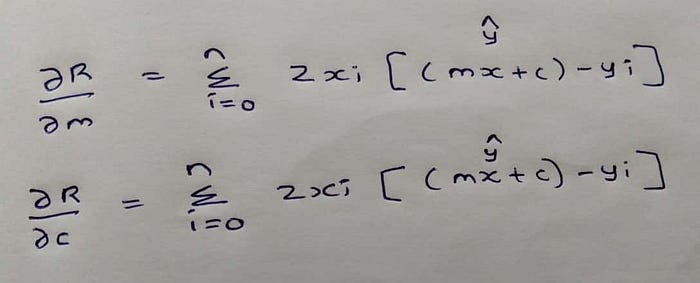 ∂R/∂m = Σ_{i=0}^{n} 2xi [ (mx+c)^{ŷ} - yi ]
∂R/∂c = Σ_{i=0}^{n} 2xi [ (mx+c)^{ŷ} - yi ]